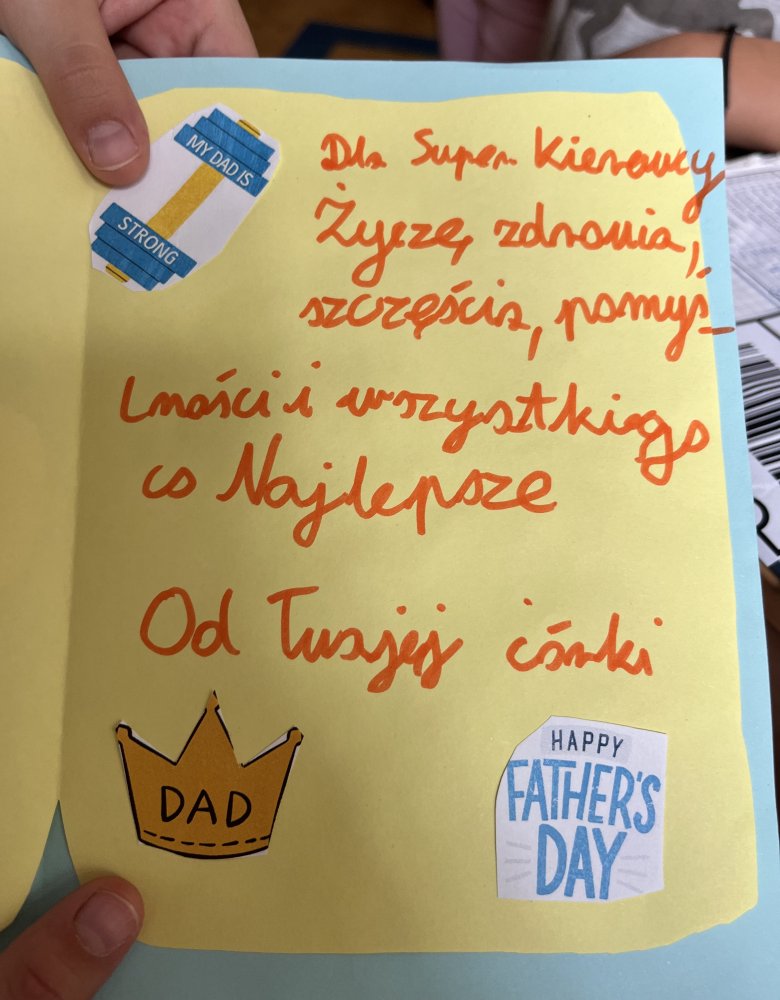 MY DAD IS
STRONG
Dla Super Kierowcy
Życzę zdrowia,
szczęścia, pomyś_
Lności i wszystkiego
co Najlepsze
Od Twojej córki
DAD
HAPPY
FATHER'S
DAY